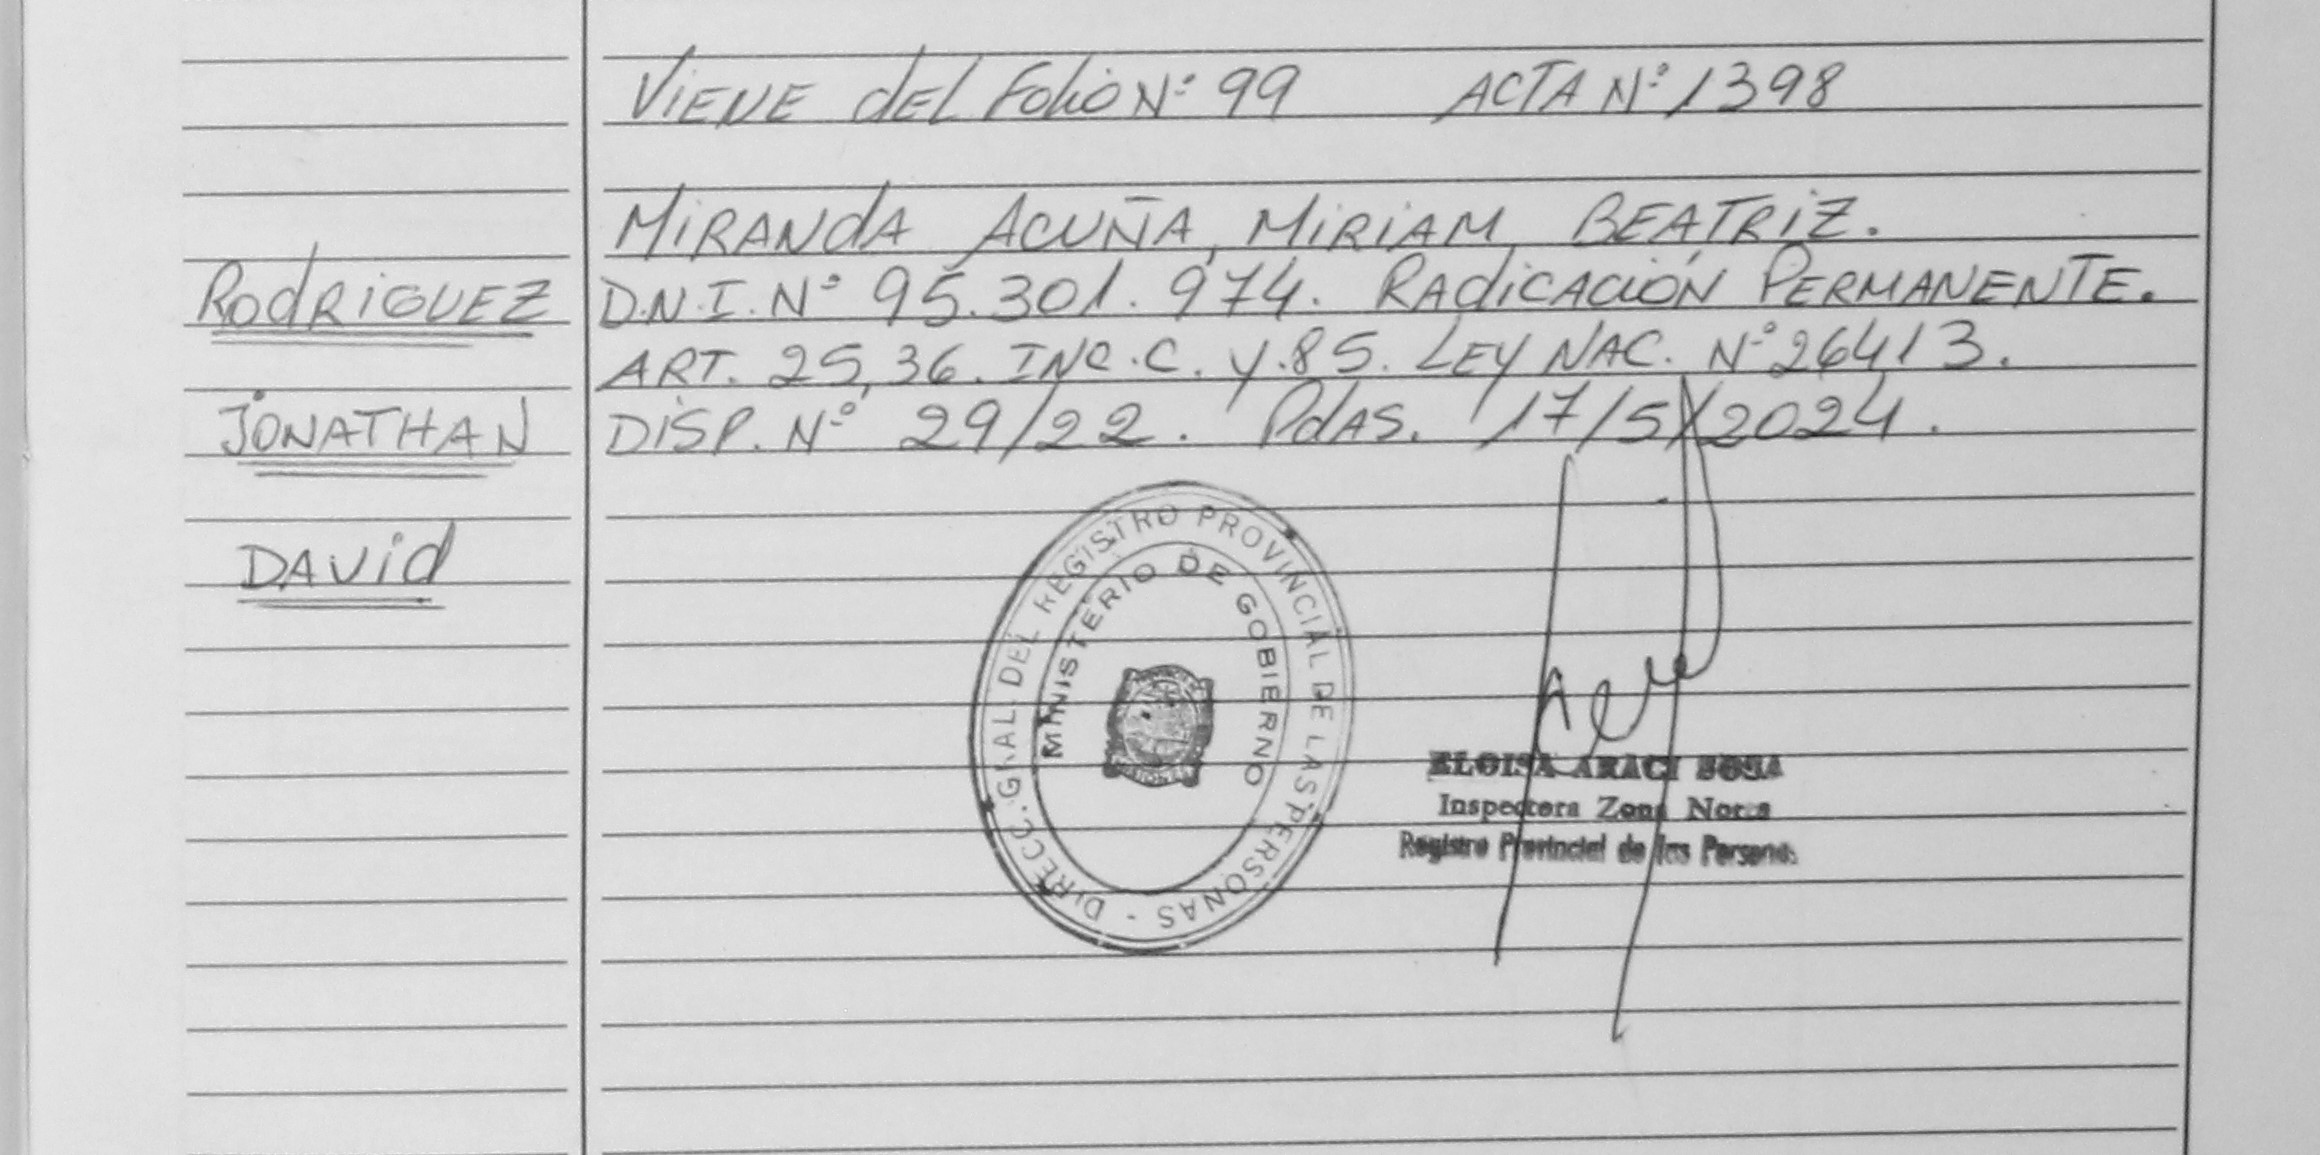 Viene del Folio N° 99 ACTA N° 1398
MIRANDA ACUÑA, MIRIAM BEATRIZ.
RODRIGUEZ
D.N.I. N° 95.301.974. RADICACIÓN PERMANENTE.
ART. 25, 36. INC. C. Y. 85. LEY NAC. N° 26413.
JONATHAN
DISP. N° 29/22. Pdas. 17/5/2024.
DAVID
DIRECC. GRAL. DEL REGISTRO PROVINCIAL DE LAS PERSONAS -
MINISTERIO DE GOBIERNO
ELOISA ARACI SOSA
Inspectora Zona Norte
Registro Provincial de las Personas